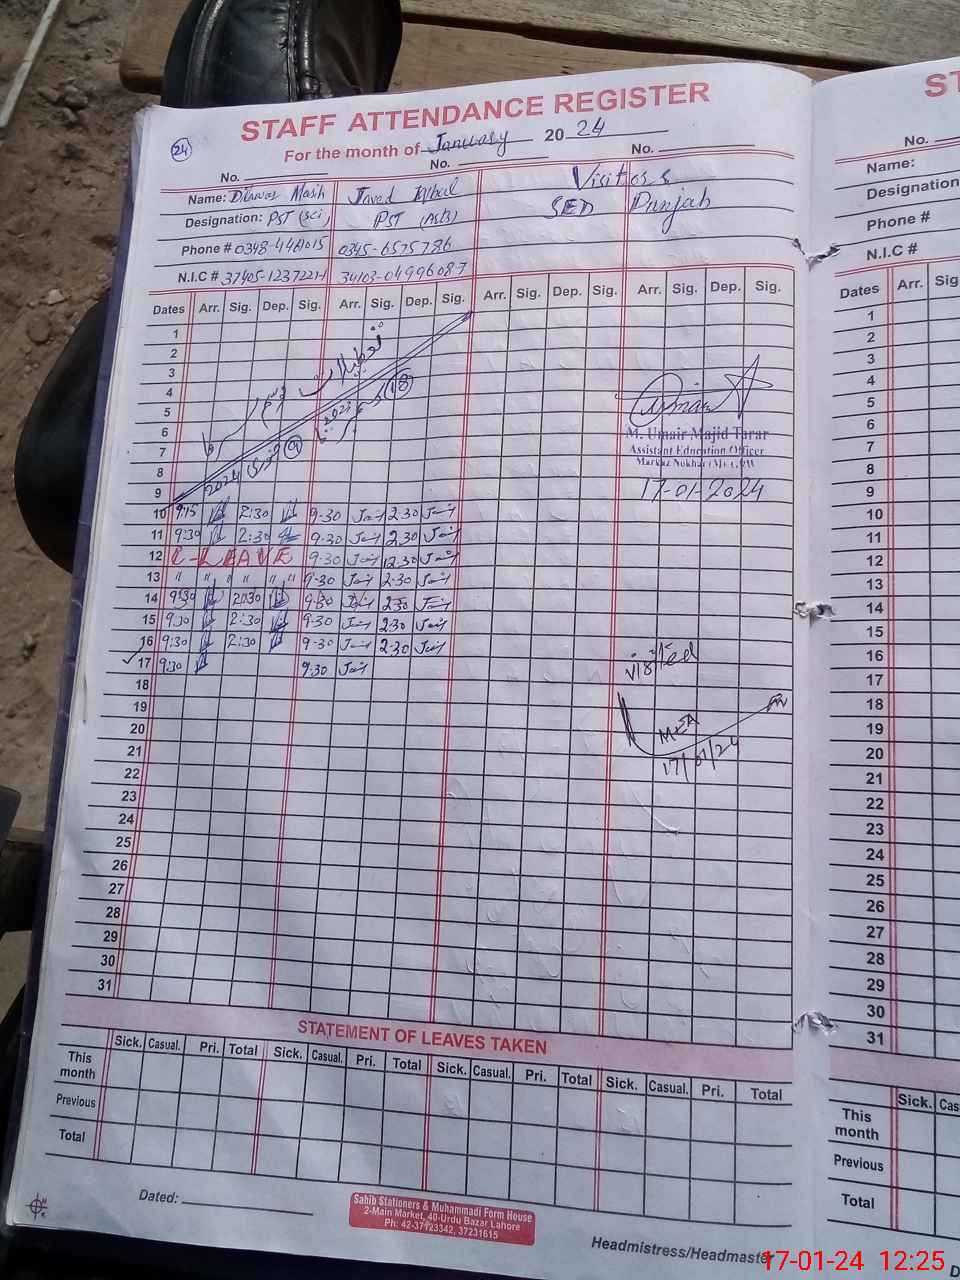 STAFF ATTENDANCE REGISTER
24
For the month of January 2024
No. No. No.
Name: Dilawar Masih Javed Iqbal Visitors
Designation: PST (Sci) PST (Arts) SED Punjab
Phone # 0348-4461015 0345-6575786
N.I.C # 37405-1237221-1 34103-0499608-7
Dates Arr. Sig. Dep. Sig. Arr. Sig. Dep. Sig. Arr. Sig. Dep. Sig. Arr. Sig. Dep. Sig.
1
2
3
4
5
6
7
8
9
تعطیلات موسم سرما
18 دسمبر 2023 تا
9 جنوری 2024
M. Umair Majid Tarar
Assistant Education Officer
17-01-2024
10 9:15 2:30 9-30 2.30
11 9:30 2:30 9-30 2.30
12 C-LEAVE 9-30 12.30
13 " " " " " " 9-30 2-30
14 9:30 2:30 9-30 2-30
15 9:30 2:30 9-30 2-30
16 9:30 2:30 9-30 2-30
17 9:30 9-30
visited
MEA
17/01/24
18
19
20
21
22
23
24
25
26
27
28
29
30
31
STATEMENT OF LEAVES TAKEN
Sick. Casual. Pri. Total Sick. Casual. Pri. Total Sick. Casual. Pri. Total Sick. Casual. Pri. Total
This month
Previous
Total
Dated:
Sahib Stationers & Muhammadi Form House
2-Main Market, 40-Urdu Bazar Lahore
Ph: 42-37123342, 37231615
Headmistress/Headmaster
ST
No.
Name:
Designation
Phone #
N.I.C #
Dates Arr. Sig
1
2
3
4
5
6
7
8
9
10
11
12
13
14
15
16
17
18
19
20
21
22
23
24
25
26
27
28
29
30
31
Sick. Cas
This month
Previous
Total
D
17-01-24 12:25